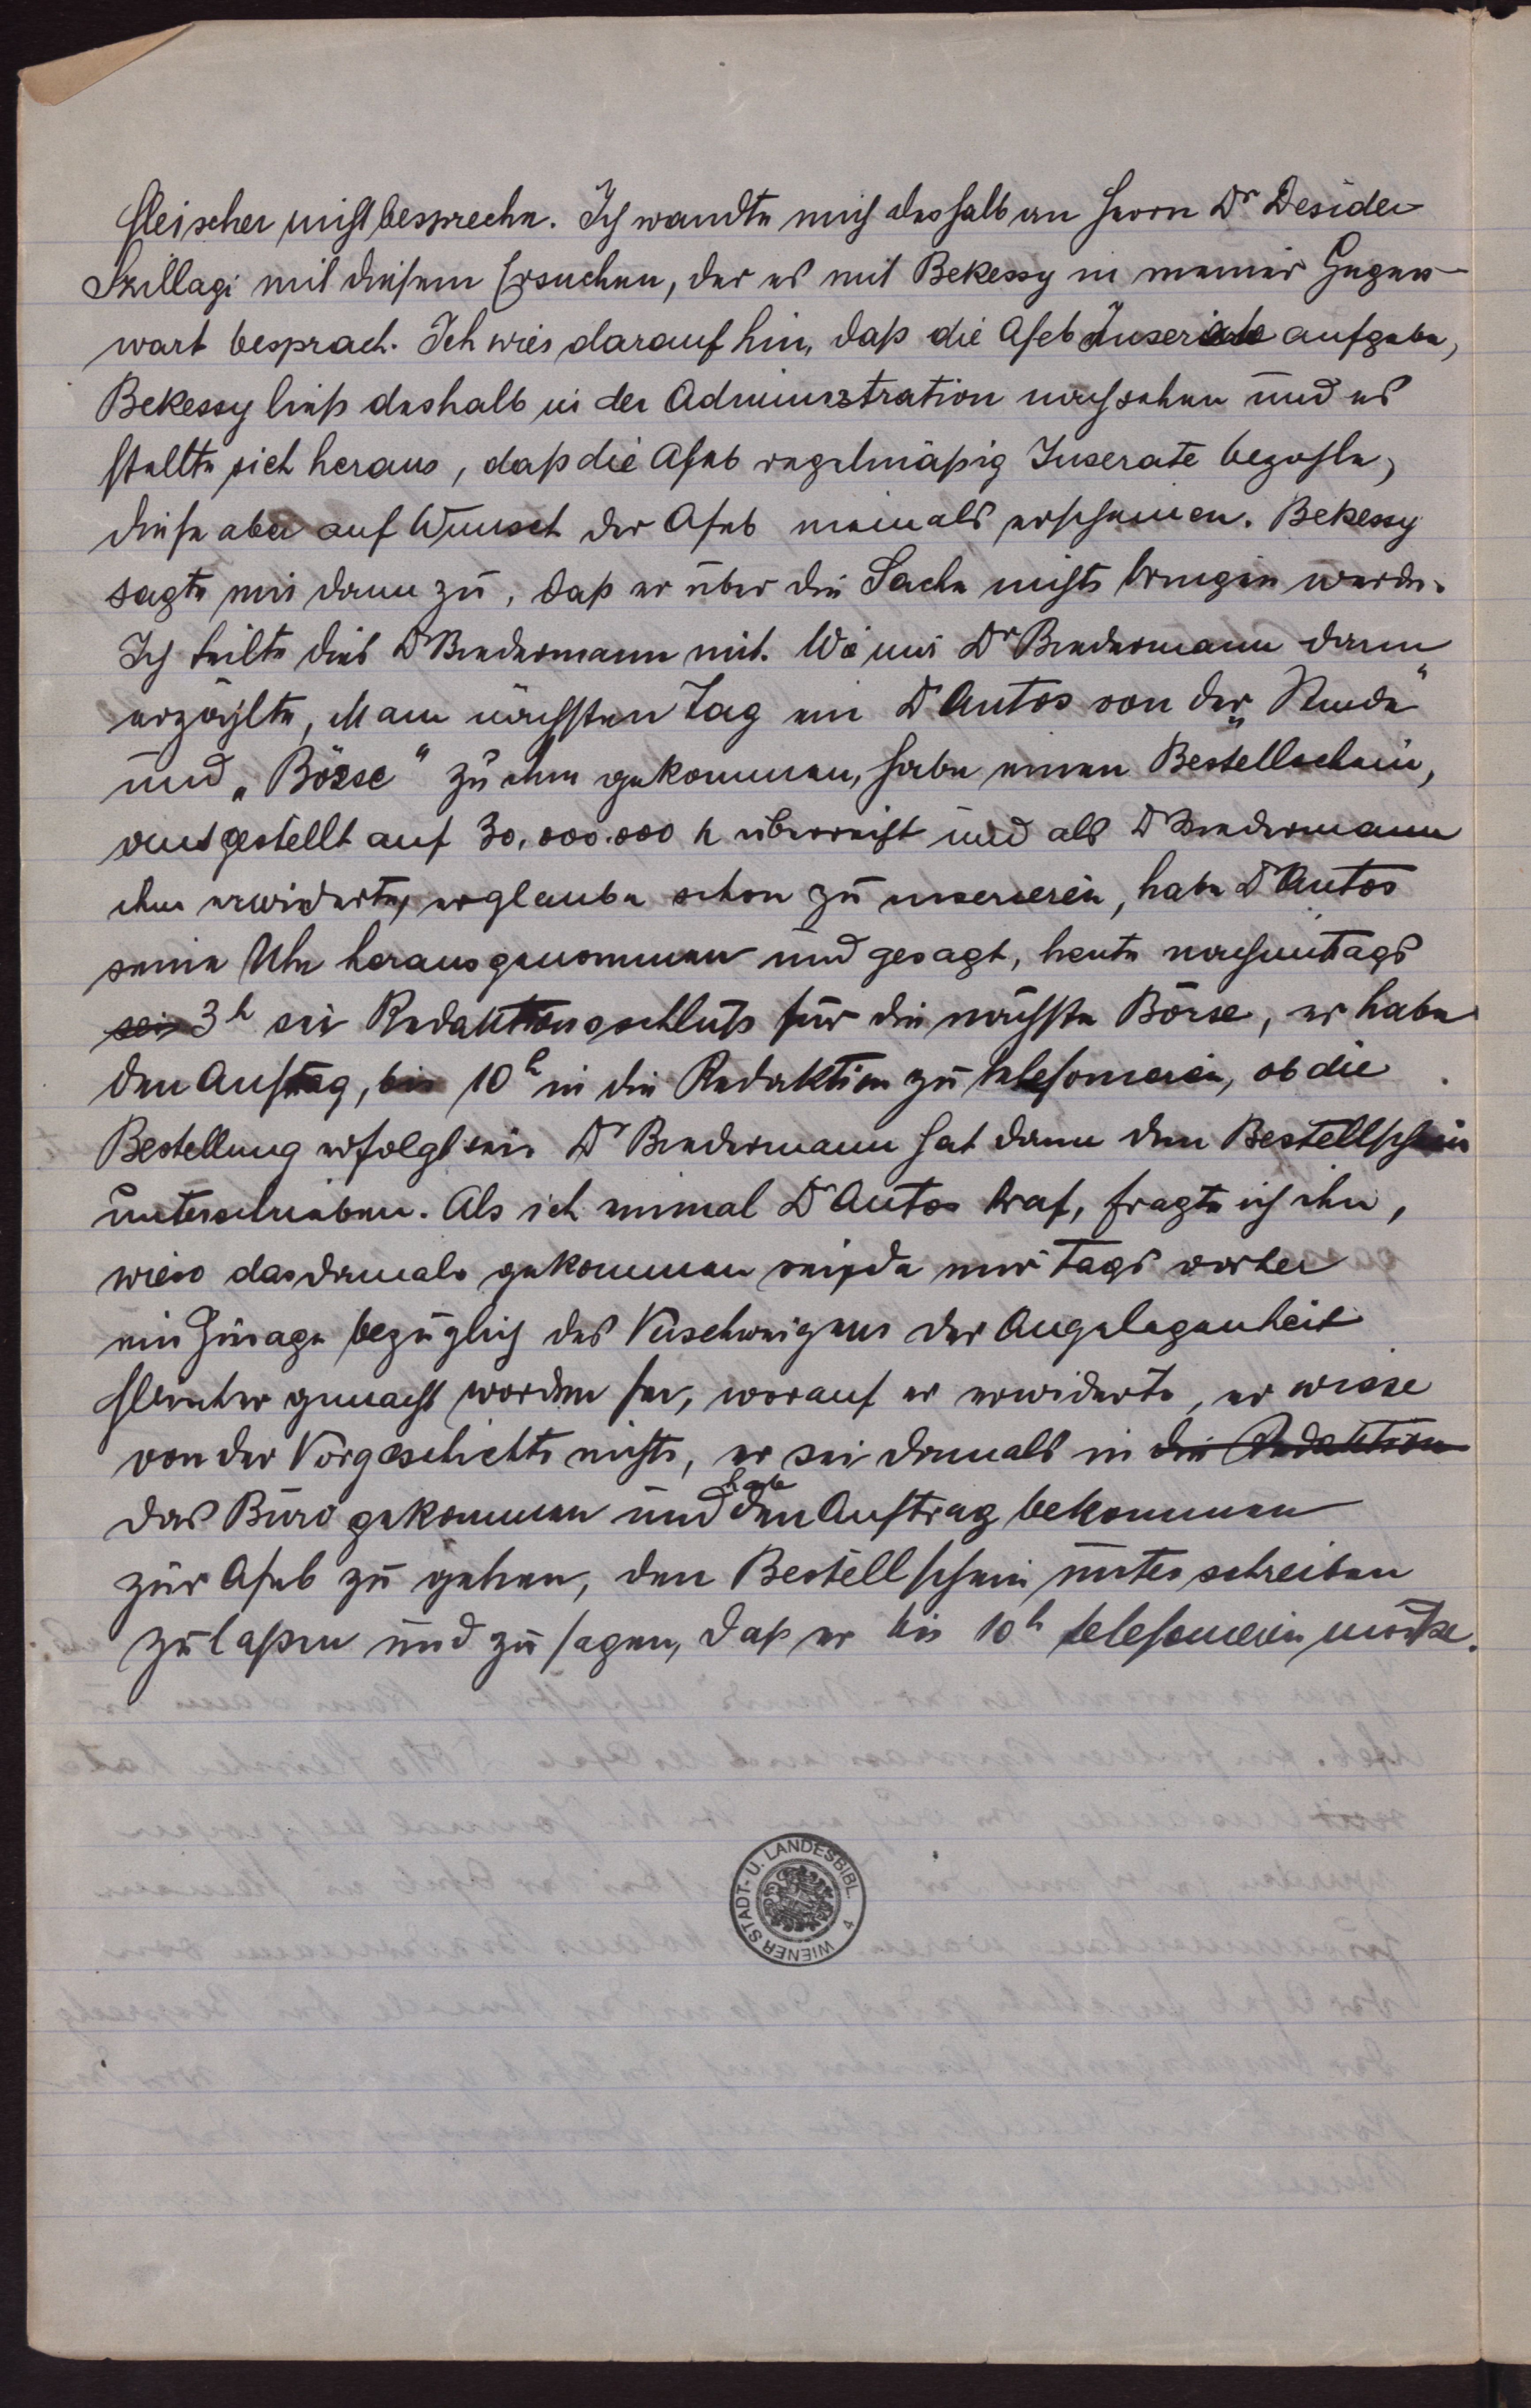 Fleischer nicht besprechen. Ich wandte mich deshalb an Herrn Dr Desider
Szillagi mit diesem Ersuchen, der es mit Bekessy in meiner Gegen-
wart besprach. Ich wies darauf hin, daß die Afeb Inserate aufgebe,
Bekessy ließ deshalb in der Administration nachsehen und es
stellte sich heraus, daß die Afeb regelmäßig Inserate bezahle,
diese aber auf Wunsch der Afeb niemals erscheinen. Bekessy
sagte mir dann zu, daß er über die Sache nichts bringen werde.
Ich teilte dies Dr Biedermann mit. Wie mir Dr Biedermann dann
erzählte, am nächsten Tag ein Dr Antos von der „Stunde“
und „Börse“ zu ihm gekommen, habe einen Bestellschein,
ausgestellt auf 30,000.000 K überreicht und als Dr Biedermann
ihm erwiderte, er glaube schon zu inserieren, habe Dr Antos
seine Uhr herausgenommen und gesagt, heute nachmittags
sei 3h sei Redaktionsschluß für die nächste Börse, er habe
den Auftrag, bis 10h in die Redaktion zu telefonieren, ob die
Bestellung erfolgt sei. Dr Biedermann hat dann den Bestellschein
unterschrieben. Als ich einmal Dr Antos traf, fragte ich ihn,
wieso das damals gekommen sei, da mir tags vorher
ein Zusage bezüglich des Verschweigens der Angelegenheit
Fleischer gemacht worden sei, worauf er erwiderte, er wisse
von der Vorgeschichte nichts, er sei damals in die Redaktion
das Büro gekommen und habe den Auftrag bekommen
zur Afeb zu gehen, den Bestellschein unterschreiben
zu lassen und zu sagen, daß er bis 10h telefonieren müsse.
WIENER STADT- U. LANDESBIBL. 4